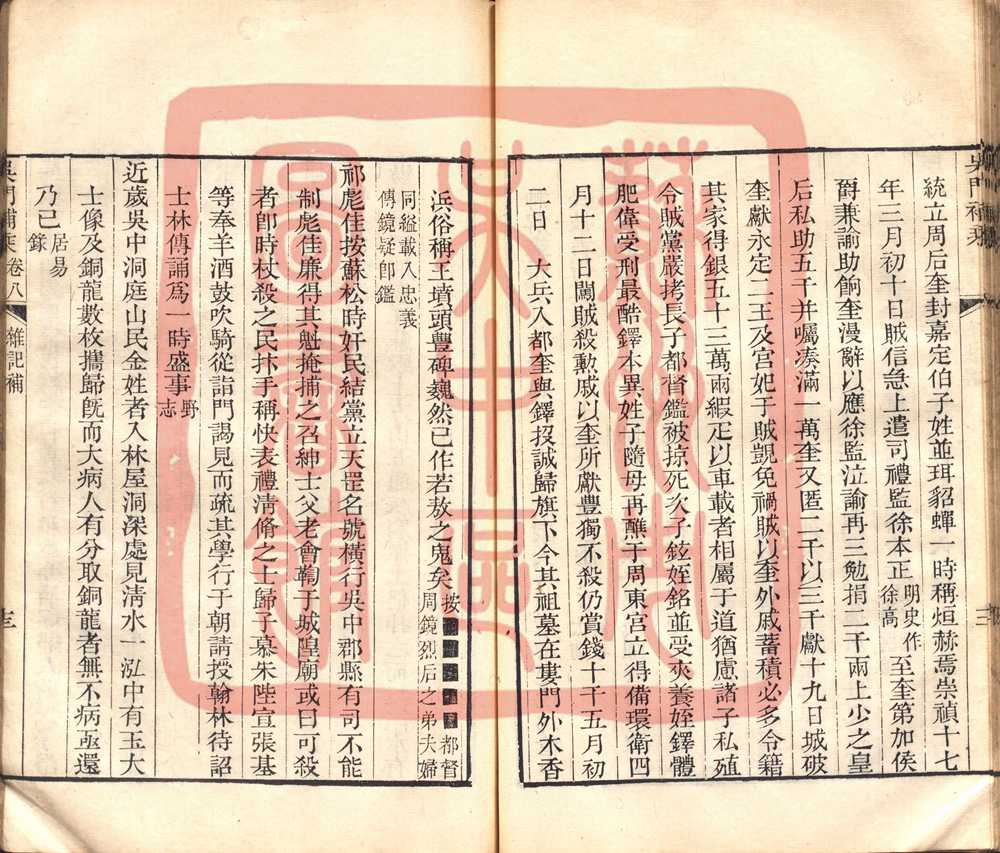 統立周后奎封嘉定伯子姓並珥貂蟬一時稱烜赫焉崇禎十七
年三月初十日賊信急上遣司禮監徐本正明史作徐高至奎第加侯
爵兼諭助餉奎漫辭以應徐監泣諭再三勉捐二千兩上少之皇
后私助五千并囑湊滿一萬奎又匿二千以三千獻十九日城破
奎獻永定二王及宮妃于賊覬免禍賊以奎外戚蓄積必多令籍
其家得銀五十三萬兩緞疋以車載者相屬于道猶慮諸子私殖
令賊黨嚴拷長子都督鑑被掠死次子鉉姪銘並受夾養姪鐸體
肥偉受刑最酷鐸本異姓子隨母再醮于周東宮立得備環衛四
月十二日闖賊殺勳戚以奎所獻豐獨不殺仍賞錢十千五月初
二日　大兵入都奎與鐸投誠歸旗下今其祖墓在婁門外木香
浜俗稱王墳頭豐碑巍然已作若敖之鬼矣按■■■■■都督周鏡烈后之弟夫婦
同縊載入忠義傳鏡疑即鑑
祁彪佳按蘇松時奸民結黨立天罡名號橫行吳中郡縣有司不能
制彪佳廉得其魁掩捕之召紳士父老會鞫于城隍廟或曰可殺
者卽時杖殺之民抃手稱快表禮清脩之士歸子慕朱陛宣張基
等奉羊酒鼓吹騎從詣門謁見而疏其學行于朝請授翰林待詔
士林傳誦爲一時盛事野志
近歲吳中洞庭山民金姓者入林屋洞深處見淸水一泓中有玉大
士像及銅龍數枚攜歸旣而大病人有分取銅龍者無不病亟還
乃已居易錄
吳門補乘 卷八 雜記補